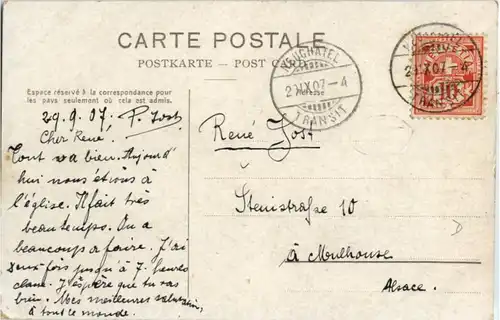 CARTE POSTALE
POSTKARTE — POST CARD
Espace réservé à la correspondance pour
les pays seulement où cela est admis.
29.9.07. P. Jost
Cher René!
Tout va bien. Aujourd'
hui nous étions à
l'église. Il fait très
beau temps. On a
beaucoup a faire. J'ai
deux fois jusqu'à 7. heures
classe. J'espère que tu vas
bien. Mes meilleures salutations,
à tout le monde.
NEUCHATEL
IX.07.-4
TRANSIT
IX.07.-4
TRANSIT
René Jost
Steinistraße 10
à Mulhouse
Alsace.